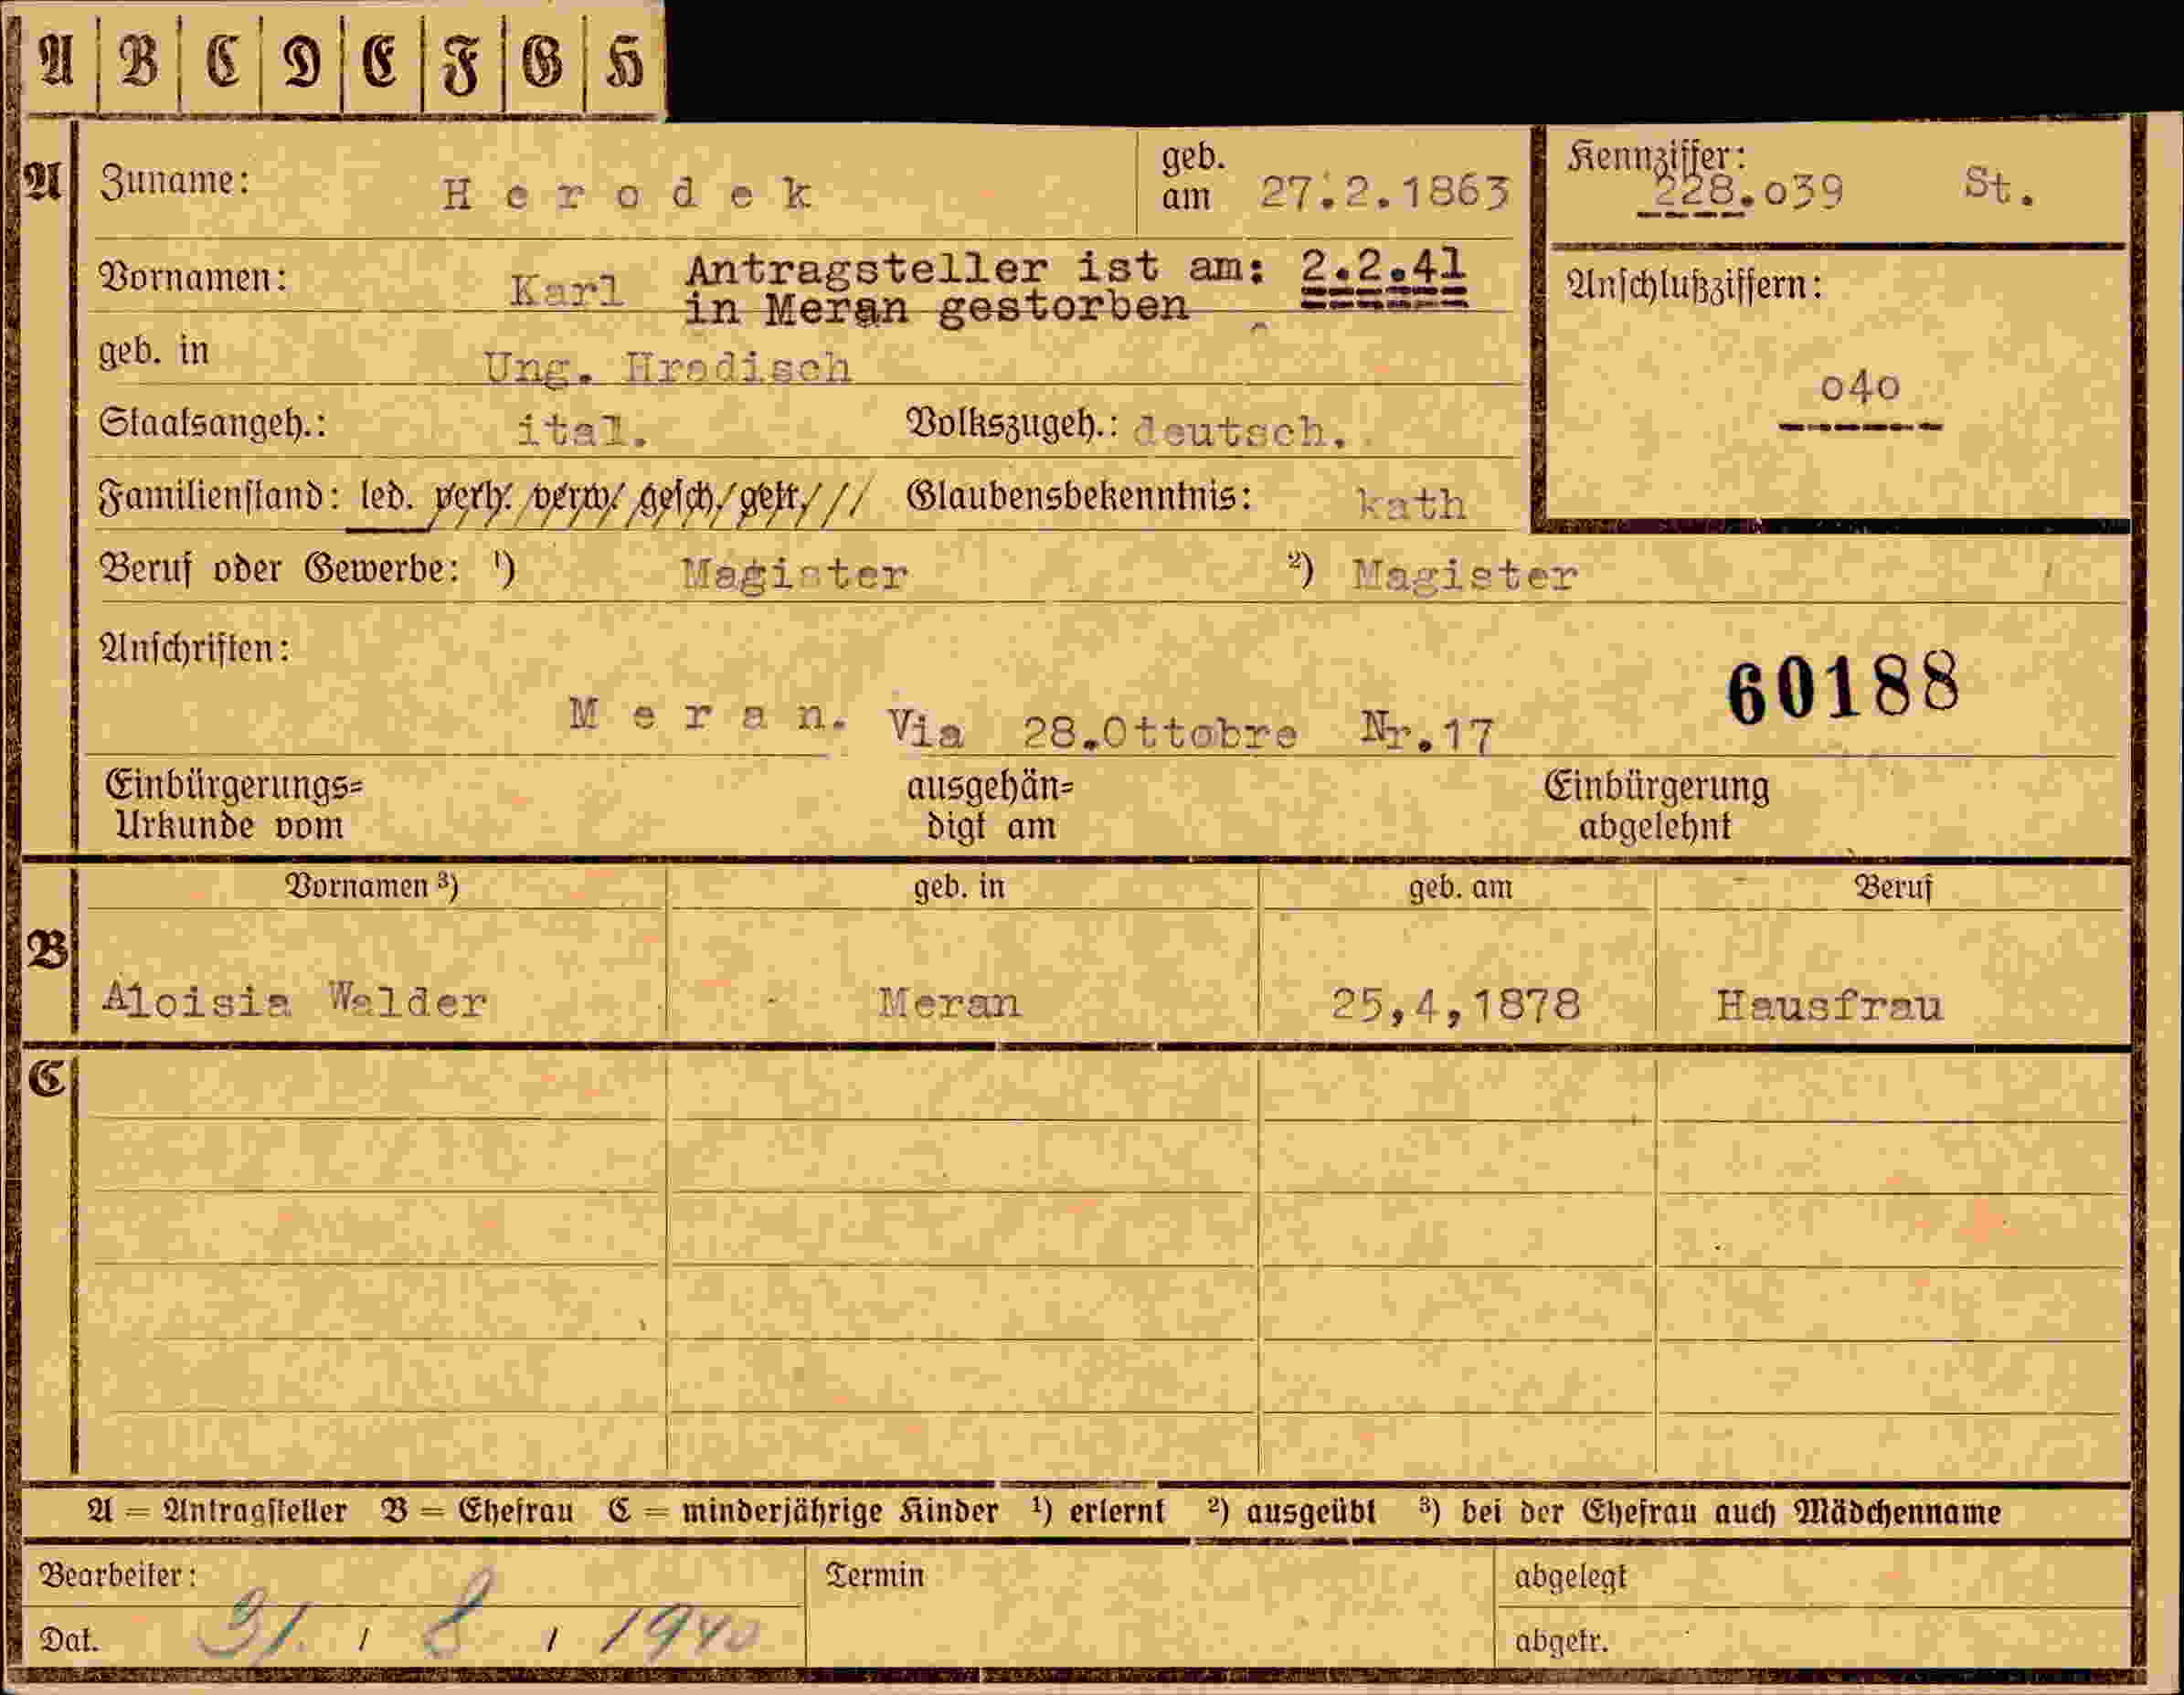 A B C D E F G H
A Zuname: Herodek geb. am 27.2.1863 Kennziffer: 228.039 St.
Vornamen: Karl Antragsteller ist am: 2.2.41
in Meran gestorben
Anschlußziffern:
geb. in Ung. Hradisch
040
Staatsangeh.: ital. Volkszugeh.: deutsch.
Familienstand: led. verh. verw. gesch. getr. /// Glaubensbekenntnis: kath
Beruf oder Gewerbe: ¹) Magister ²) Magister
Anschriften:
60188
Meran. Via 28.Ottobre Nr.17
Einbürgerungs= ausgehän= Einbürgerung
Urkunde vom digt am abgelehnt
Vornamen ³) geb. in geb. am Beruf
B
Aloisia Walder Meran 25,4,1878 Hausfrau
C
A = Antragsteller B = Ehefrau C = minderjährige Kinder ¹) erlernt ²) ausgeübt ³) bei der Ehefrau auch Mädchenname
Bearbeiter: Termin abgelegt
Dat. 31. / 8 / 1940 abgetr.